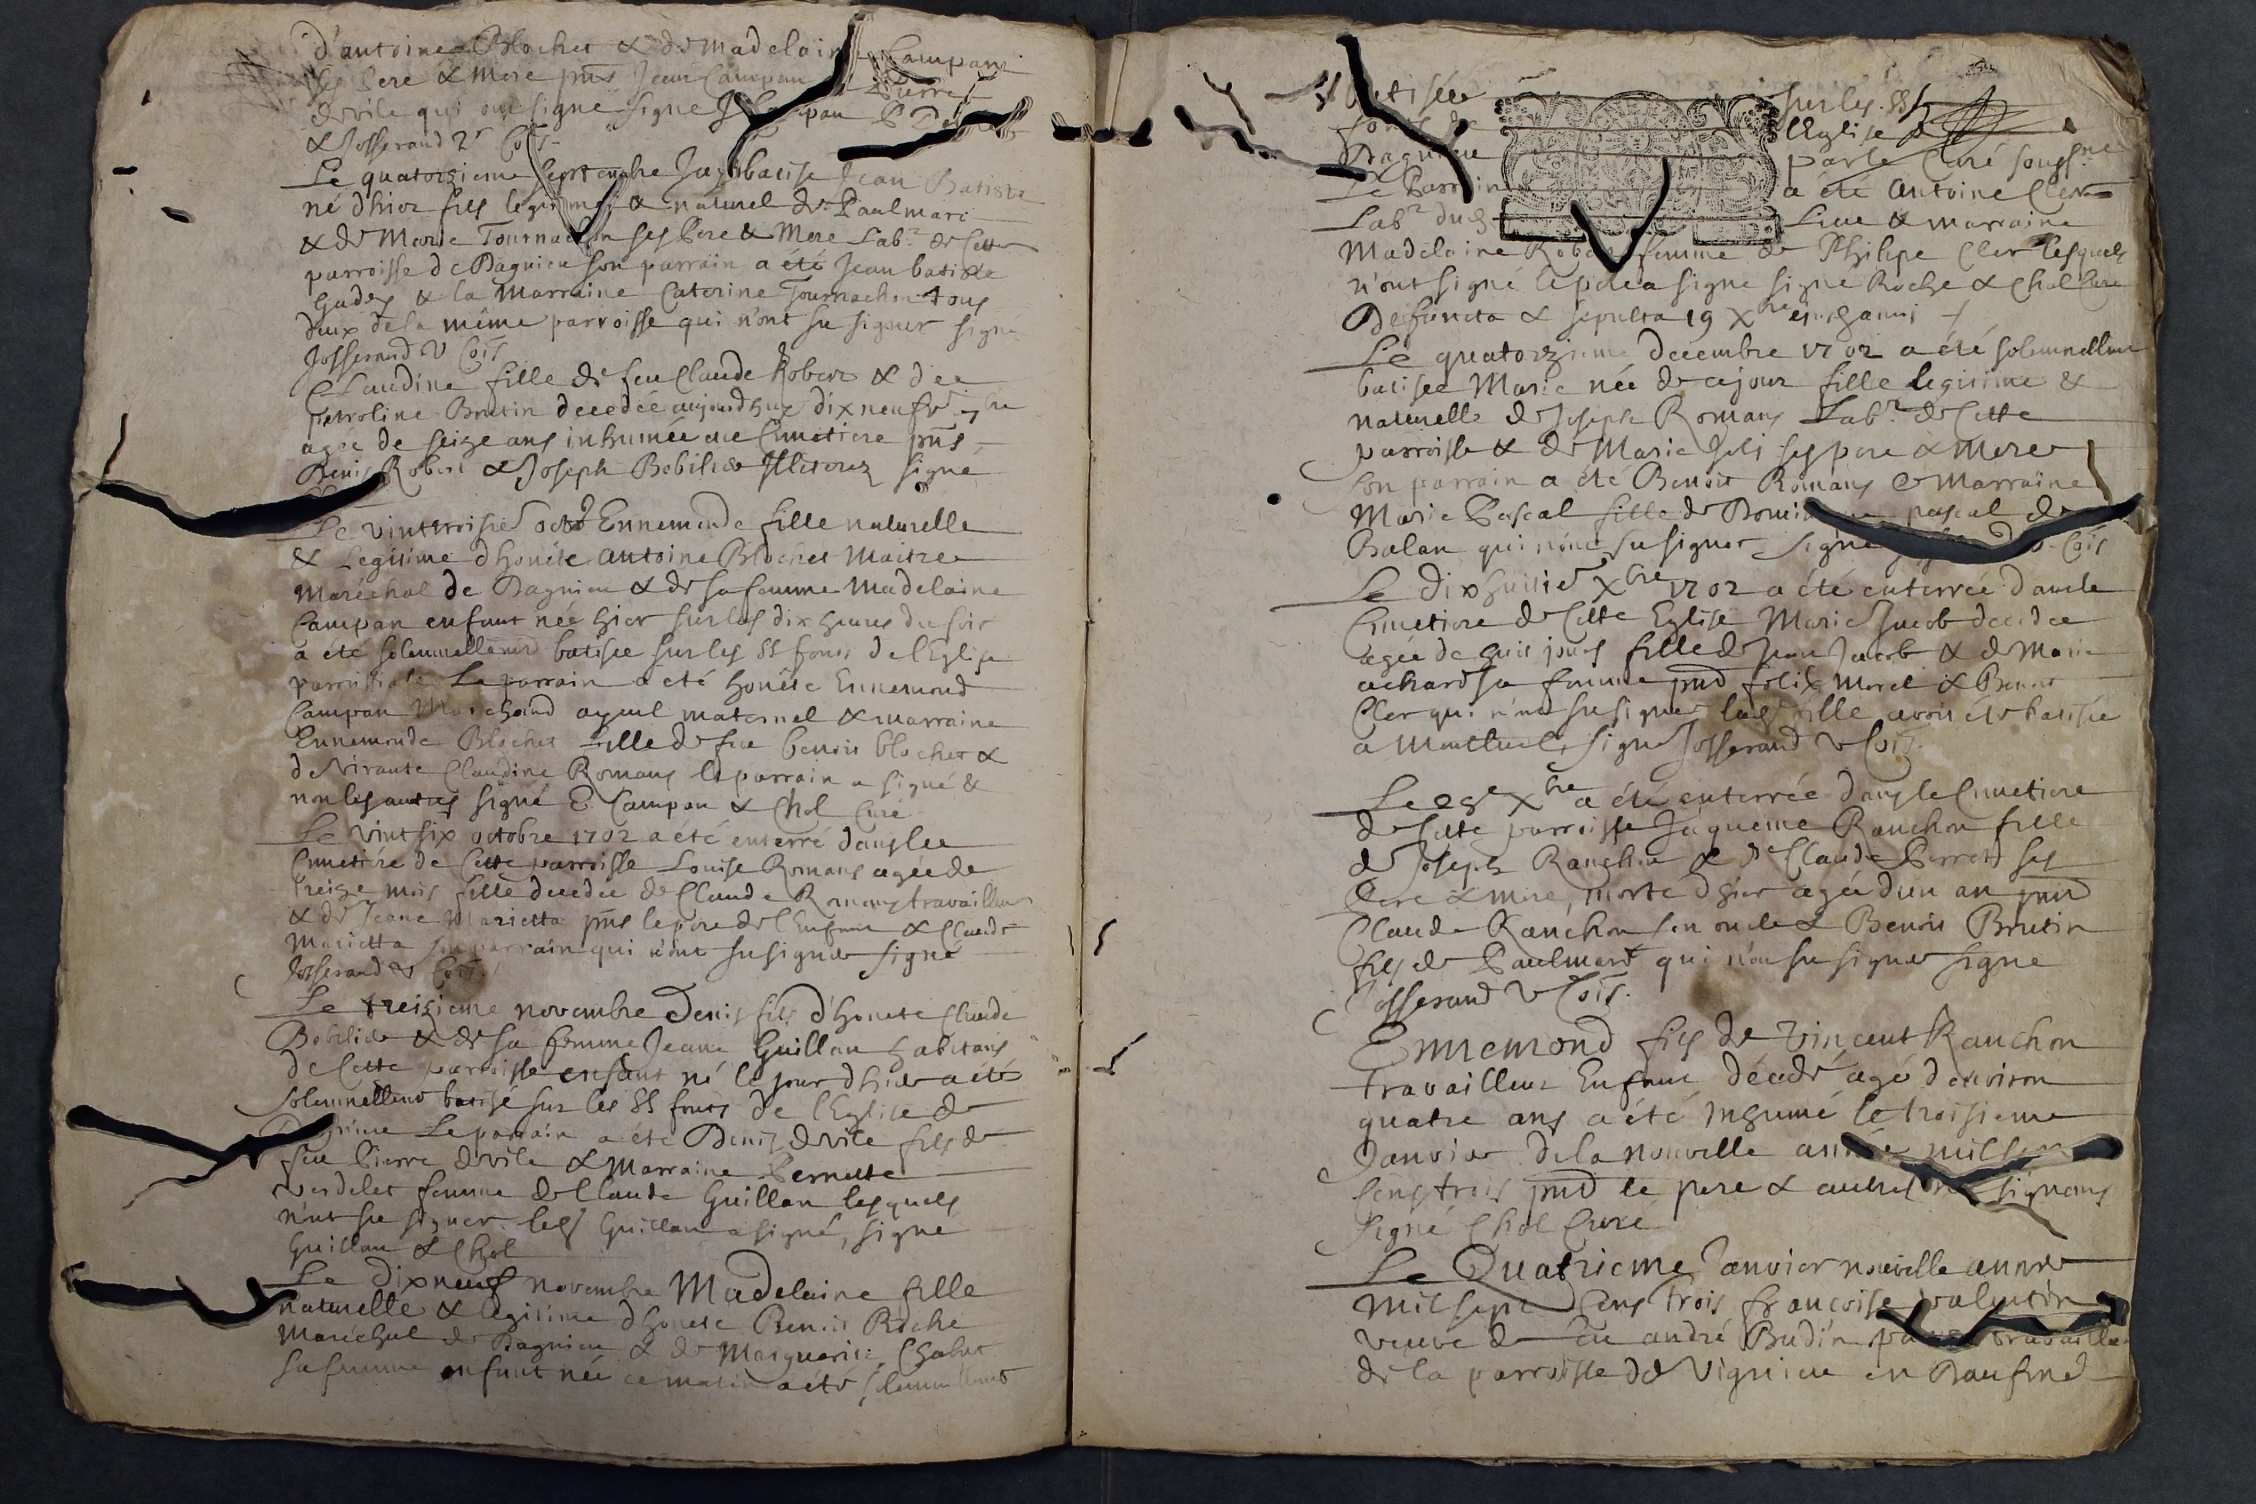 d'antoine Blochet & de Madelaine Campan
ses Pere & Mere pnts Jean Campan Pierre
devile qui ont signé signé J Campan P De
& Josserand Vr Cois
Le quatorsieme septembre Jay batisé Jean Batiste
né dhier fils legitime & naturel de Paulmari
& de Marie Tournachon ses Pere & Mere Labr de Cette
parroisse de Dagnieu son parrain a eté Jean batiste
Gudes & la Marraine Caterine Tournachon tous
deux de la même parroisse qui n'ont su signer signé
Josserand V Cois
Claudine fille de feu Claude Robert & de
petroline Brutin decedée aujourdhuy dix neufve 7bre
agée de seize ans inhumée au Cimetiere pnts
Denis Robert & Joseph Bobilide Illiterez signé
Le vint troisie octob Ennemonde fille naturelle
& Legitime dhonête antoine Blochet Maitre
Maréchal de Dagnieu & de sa femme Madelaine
Campan enfant née hier sur les dix heures du soir
a été solemnellement batisée sur les SS fonts de l'Eglise
parroissiale Le parrain a été honête Ennemond
Campan Marchand ayeul maternel & marraine
Ennemonde Blochet fille de feu benoit blochet &
de vivante Claudine Romans le parrain a signé &
non les autres signé E. Campan & Chol Curé
Le vint six octobre 1702 a été enterré dans le
Cimetiére de Cette parroisse Louise Romans agée de
treize mois fille decedée de Claude Romans travailleur
& de Jeane Marietta pnts le pere de l'Enfant & Claude
Marietta son parrain qui n'ont su signer signé
Josserand V Cois
Le treisieme novembre Denis fils d'honete Claude
Bobilide & de sa femme Jeane Guillan habitans
de Cette parroisse enfant né le jour dhier a été
solemnellemt batisé sur les SS fonts de l'Eglise de
Dagnieu Le parrain a été Denis devile fils de
feu Pierre devile & Marraine Pernette
Verdelet femme de Claude Guillan lesquels
n'ont su signer led Guillan a signé, signé
Guillan & Chol
Le dixneuf novembre Madelaine fille
naturelle & legitime dhonete Benoit Roche
Maréchal de Dagnieu & de Marguerite Chabut
sa femme enfant née ce matin a été solemnellement
batisée sur les SS
fonts de l'Eglise de
Dagnieu par le Curé soussné
Le Parrain a été Antoine Cler
Labr dud Lieu & marraine
Madelaine Robert femme de Philipe Cler lesquels
n'ont signé le pere a signé signé Roche & Chol Curé
Defuncta & sepulta 19 Xbre
Le quatorzieme decembre 1702 a été solemnellemt
batisée Marie née de ce jour fille legitime &
naturelle de Joseph Romans Labr de Cette
parroisse & de Marie Joli ses pere & Mere
son parrain a été Benoit Romans & Marraine
Marie Pascal fille de Dominique pascal de
Balan qui n'ont su signer signé Josserand V. Cois
Le Dixhuitie Xbre 1702 a été enterrée dans le
Cimetiere de Cette Eglise Marie Jacob decedée
agée de huit jours fille de Jean Jacob & de Marie
achard sa femme pnd felix Morel & Benoit
Cler qui n'ont su signer lade fille avoit été batisée
a Montluel, signé Josserand V Cois
Le 29e Xbre a été enterrée dans le Cimetiere
de Cette parroisse Jaqueme Ranchon fille
de Joseph Ranchon & de Claude Perret ses
Pere & mere, morte dhier agée d'un an pnd
Claude Ranchon son oncle & Benoit Brutin
fils de Paulmart qui n'ont su signer signé
Josserand V Cois.
Ennemond fils de Vincent Ranchon
travailleur Enfant décedé agé d'environ
quatre ans a été Inhumé le troisieme
Janvier de la nouvelle année mil sept
Cens trois pnd le pere & autres non signans
Signé Chol Curé
Le Quatrieme Janvier nouvelle année
Mil sept Cens trois françoise valentin
veuve de feu andré Budin travailleur
de la parroisse de Vignieu en Daufiné